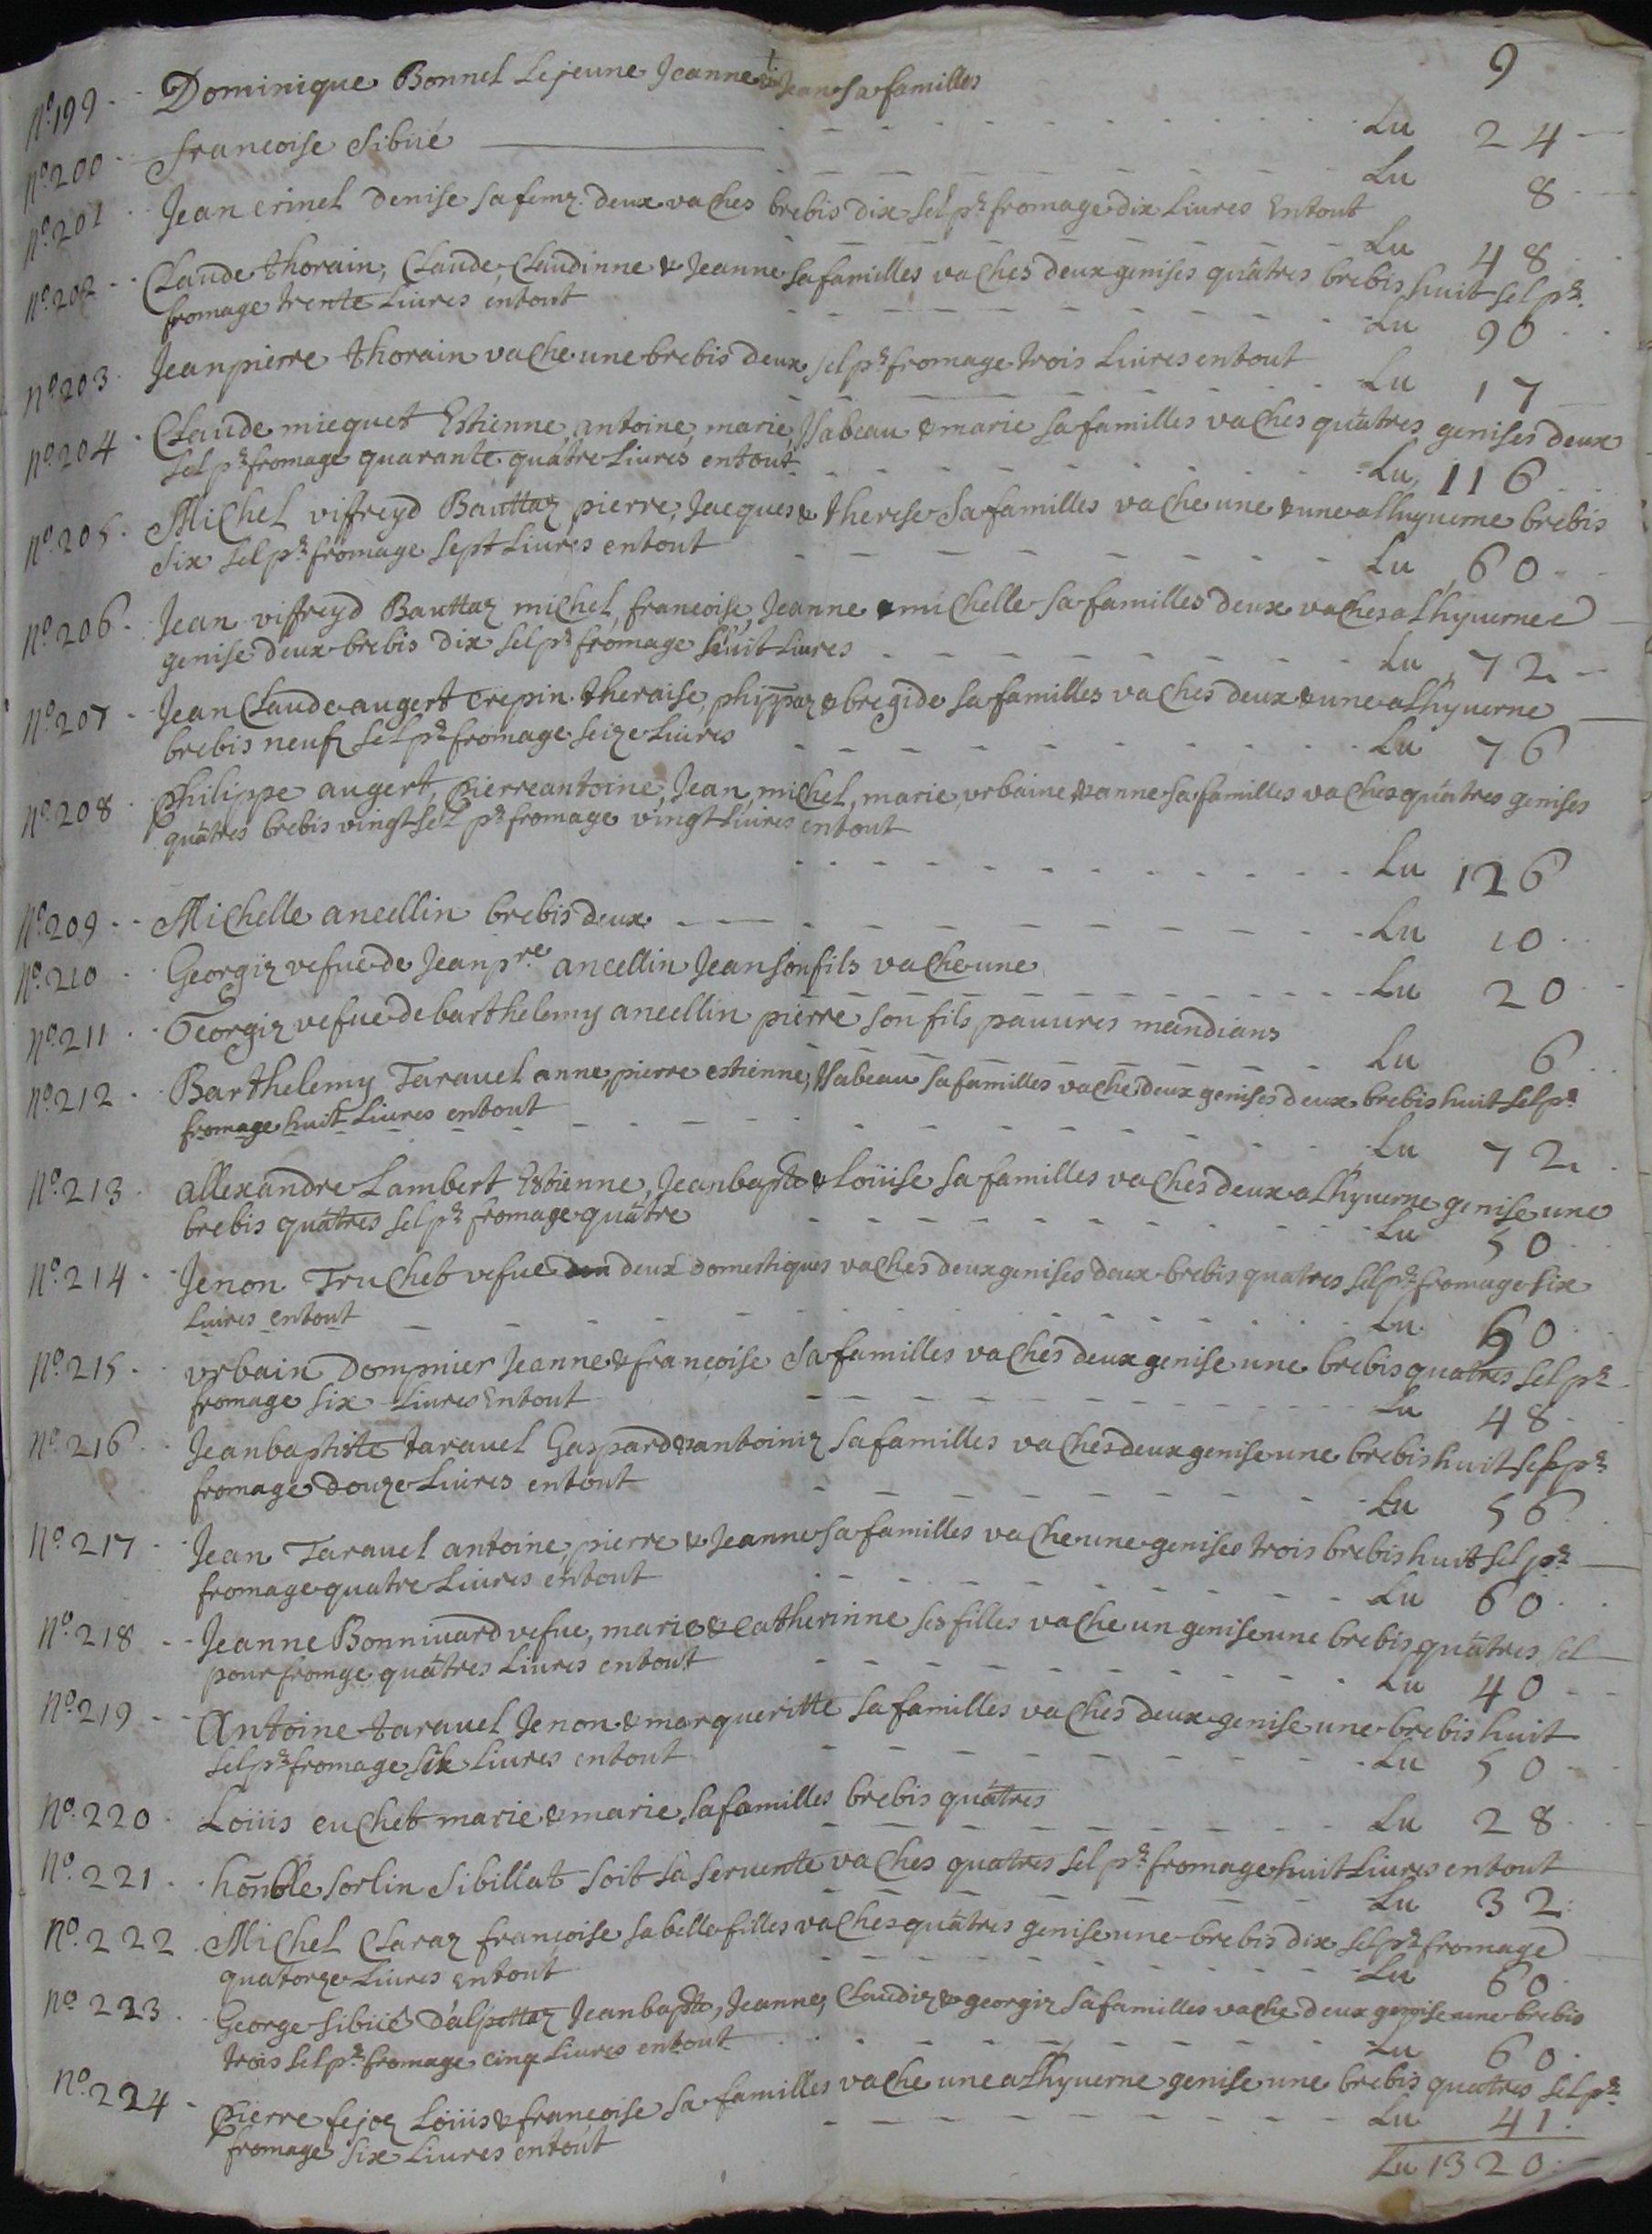 9
No. 199 Dominique Bonnel Lejeune Jeanne & Jean sa familles Lu 24
No. 200 francoise Sibué Lu 8
No. 201 Jean crinel denise sa femz. deux vaches brebis dix sel pr. fromage dix Liures Entout Lu 48
No. 202 Claude thorain, Claude, Claudinne & Jeanne sa familles vaches deux genises quatres brebis huit sel pr.
fromage trente Liures entout Lu 90
No. 203 Jean pierre thorain vache une brebis deux sel pr. fromage trois Liures entout Lu 17
No. 204 Claude micquet Estienne, antoine, marie, Ysabeau & marie sa familles vaches quatres genises deux
sel pr. fromage quarante quatre Liures entout Lu 116
No. 205 Michel viffreyd Bauttaz pierre, Jacques & therese sa familles vache une & une a Lhyuerne brebis
six sel pr. fromage sept Liures entout Lu 60
No. 206 Jean viffreyd Bauttaz michel, francoise, Jeanne & michelle sa familles deux vaches a Lhyuernee
genise deux brebis dix sel pr. fromage huit Liures Lu 72
No. 207 Jean Claude augert crepin theraise, phippaz & bregide sa familles vaches deux & une a Lhyuerne
brebis neuf sel pr. fromage seize Liures Lu 76
No. 208 Philippe augert, Pierre antoine, Jean, michel, marie, vrbaine & anne sa familles vaches quatres genises
quatres brebis vingt sel pr. fromage vingt Liures entout Lu 126
No. 209 Michelle ancellin brebis deux Lu 10
No. 210 Georgiz vefue de Jean pre. ancellin Jean son fils vache une Lu 20
No. 211 Georgiz vefue de barthelemy ancellin pierre son fils pauures mandians Lu 6
No. 212 Barthelemy Tarauel anne, pierre estienne, Ysabeau sa familles vaches deux genises deux brebis huit sel pr.
fromage huit Liures entout Lu 72
No. 213 allexandre Lambert Estienne, Jean bapte. & Loüise sa familles vaches deux a Lhyuerne genise une
brebis quatres sel pr. fromage quatre Lu 50
No. 214 Jenon Truchet vefue deux domestiques vaches deux genises deux brebis quatres sel pr. fromage six
Liures entout Lu 60
No. 215 vrbain Dompnier Jeanne & francoise sa familles vaches deux genise une brebis quatres sel pr.
fromage six Liures Entout Lu 48
No. 216 Jean baptiste tarauel Gaspard & antoiniz sa familles vaches deux genise une brebis huit sel pr.
fromage douze Liures entout Lu 56
No. 217 Jean Tarauel antoine, pierre & Jeanne sa familles vache une genises trois brebis huit sel pr.
fromage quatre Liures entout Lu 60
No. 218 Jeanne Bonniuard vefue, marie & Catherinne ses filles vache un genise une brebis quatres sel
pour fromge quatres Liures entout Lu 40
No. 219 Antoine tarauel Jenon & margueritte sa familles vaches deux genise une brebis huit
sel pr. fromage six Liures entout Lu 50
No. 220 Loüis cuchet marie & marie sa familles brebis quatres Lu 28
No. 221 honble sorlin sibillat soit sa seruente vaches quatres sel pr. fromage huit Liures entout Lu 32
No. 222 Michel Claraz françoise sa belle filles vaches quatres genise une brebis dix sel pr. fromage
quatorze Liures Entout Lu 60
No. 223 George sibüé Dalpettaz Jean bapte, Jeanne, Claudiz & georgiz sa familles vache deux genise une brebis
trois sel pr. fromage cinq Liures entout Lu 60
No. 224 Pierre fejoz Loüis & françoise sa familles vache une a Lhyuerne genise une brebis quatres sel pr.
fromage six Liures entout Lu 41
Lu 1320